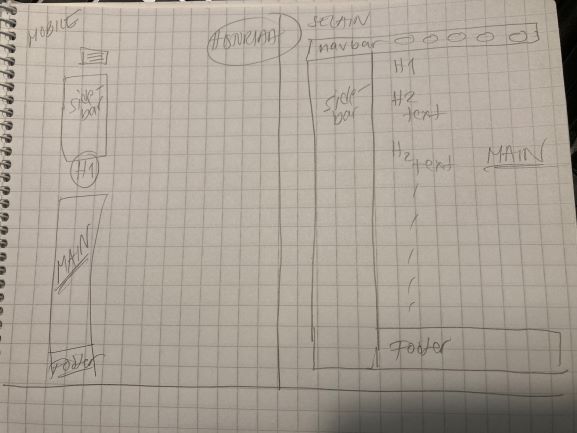 MOBILE
Side-
bar
H1
MAIN
Footer
SELAIN
navbar
Side-
bar
H1
H2
text
H2
text
MAIN
Footer